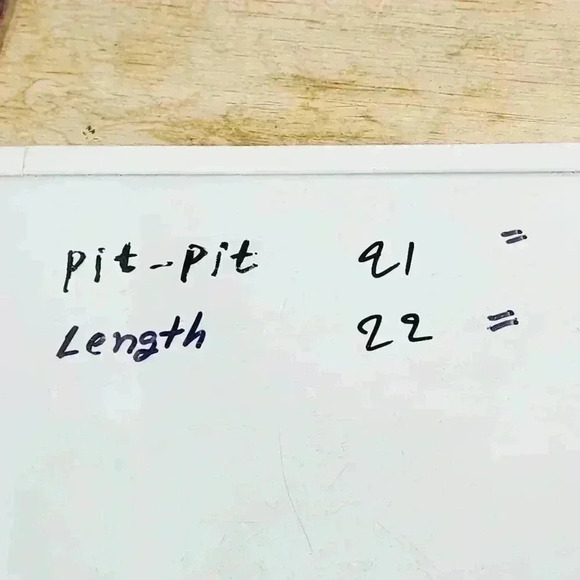 pit-pit 21 "
Length 22 "